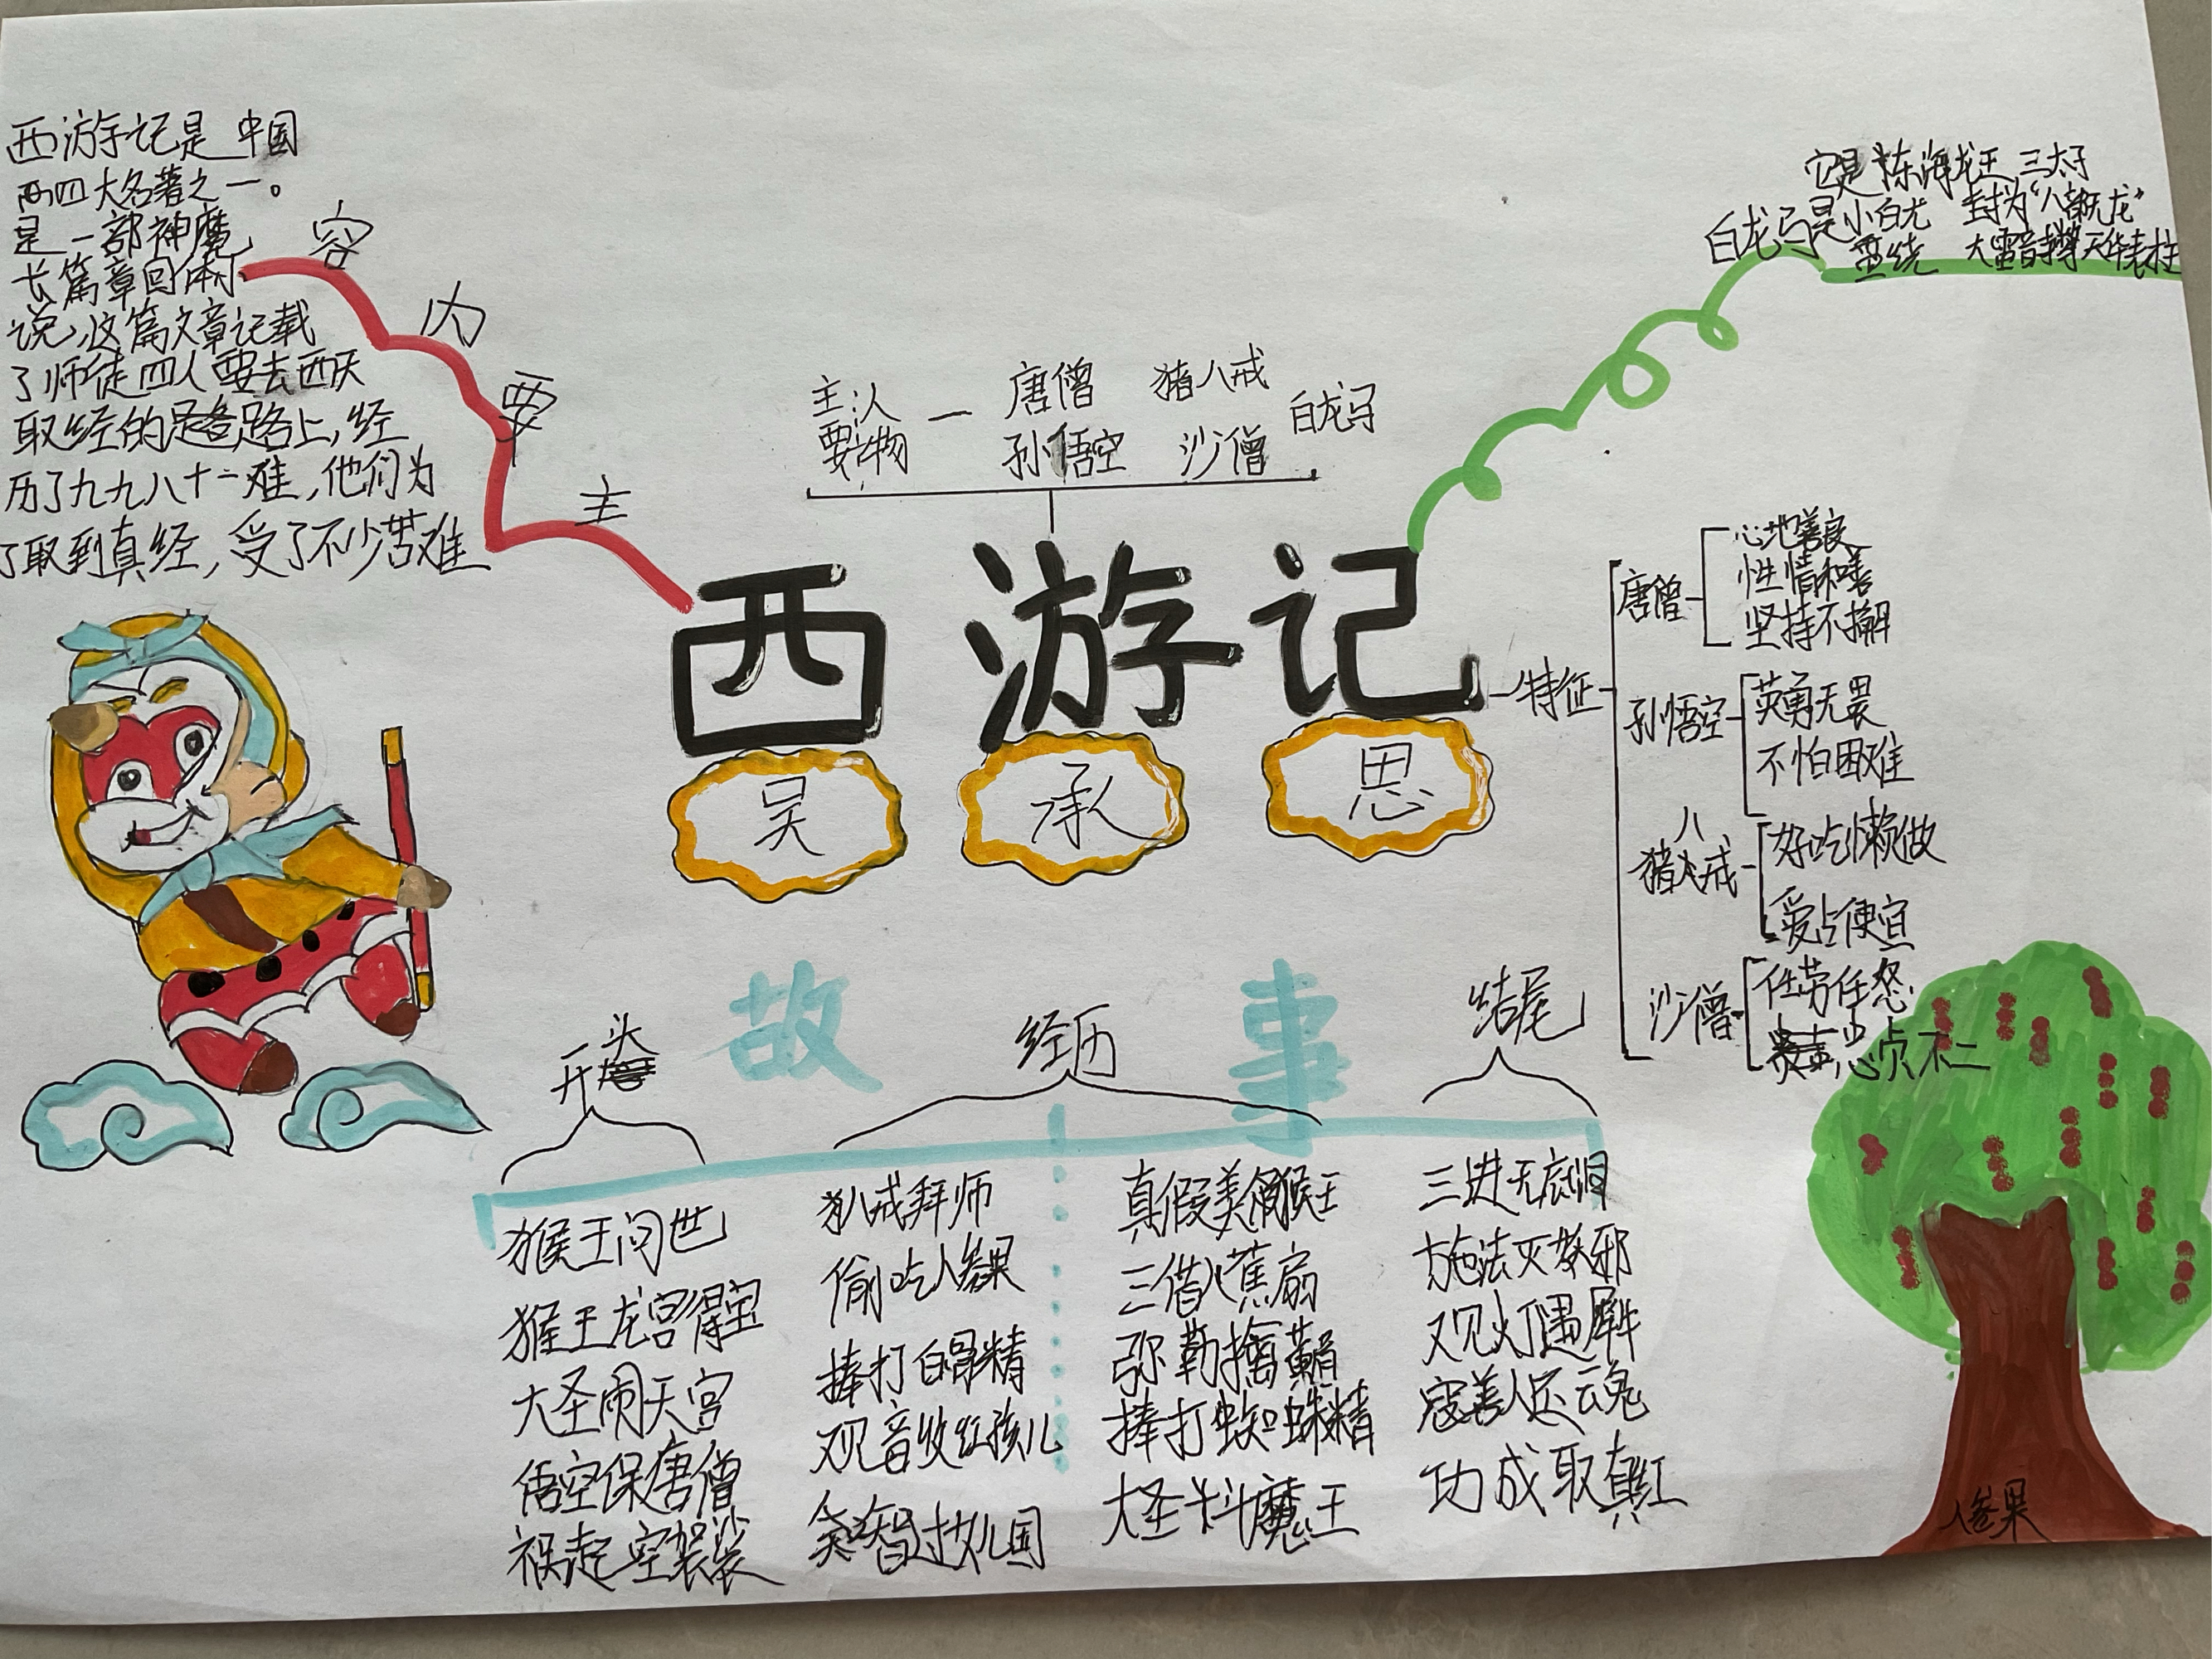 西游记是中国
四大名著之一。
是一部神魔
长篇章回体小
说,这篇文章记载
了师徒四人要去西天
取经的路上,经
历了九九八十一难,他们为
了取到真经,受了不少苦难
容
内
要
主
主要人物—
唐僧 猪八戒
孙悟空 沙僧
白龙马
它是东海龙王三太子
白龙马是小白龙
封为“八部天龙”
大雷音寺擎天华表柱
西游记
吴承思
特征
唐僧
心地善良
性情和善
坚持不懈
孙悟空
英勇无畏
不怕困难
猪八戒
好吃懒做
爱占便宜
沙僧
任劳任怨
忠贞不二
故事
开头
猴王问世
猴王龙宫得宝
大圣闹天宫
悟空保唐僧
祸起空袈裟
经历
八戒拜师
偷吃人参果
捧打白骨精
观音收红孩儿
智过女儿国
真假美猴王
三借八蕉扇
弥勒擒黄眉
捧打蜘蛛精
大圣斗魔王
结尾
三进无底洞
施法灭邪
观灯遇犀牛
寇善人还魂
功成取真经
人参果